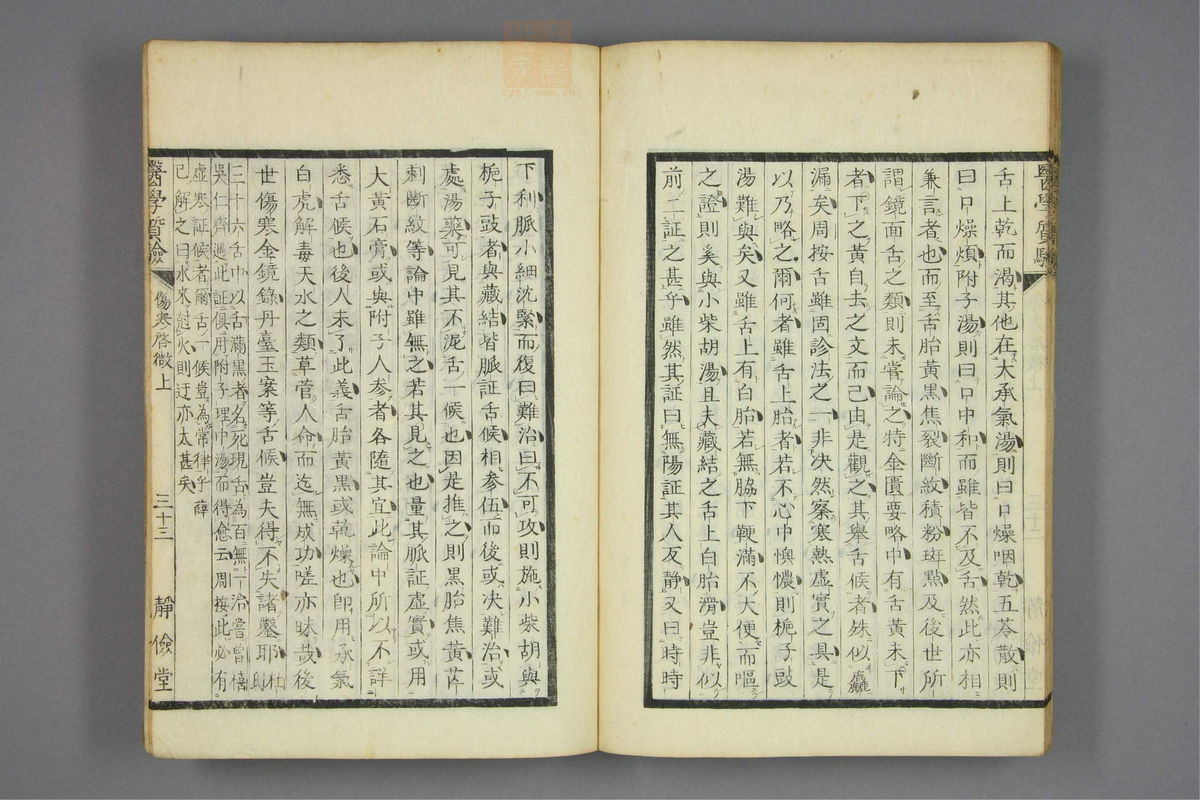 舌上乾而渴其他在大承氣湯則曰口燥咽乾五苓散則
曰口燥煩附子湯則曰口中和而雖皆不及舌然此亦相
兼言者也而至舌胎黃黑焦裂斷紋積粉斑點及後世所
謂鏡面舌之類則未嘗論之特金匱要略中有舌黃未下
者下之黃自去之文而已由是觀之其舉舌候者殊似麤
漏矣周按舌雖固診法之一非决然察寒熱虛實之具是
以乃略之爾何者雖舌上胎者若不心中懊憹則梔子豉
湯難與矣又雖舌上有白胎若無脇下鞕滿不大便而嘔
之證則奚與小柴胡湯且夫藏結之舌上白胎滑豈非似
前二証之甚乎雖然其証曰無陽証其人反靜又曰時時
醫學質驗
下利脈小細沈緊而復曰難治曰不可攻則施小柴胡與
梔子豉者與藏結皆脈証舌候相参伍而後或决難治或
處湯藥可見其不泥舌一候也因是推之則黑胎焦黃芒
刺斷紋等論中雖無之若其見之也量其脈証虛實或用
大黃石膏或與附子人参者各隨其宜此論中所以不詳
悉舌候也後人未了此義舌胎黃黑或乾燥也卽用承氣
白虎解毒天水之類草菅人命而迄無成功嗟亦昧哉後
世傷寒金鏡錄丹臺玉案等舌候豈夫得不失諸鑿耶杜
三十六舌中以舌滿黑者名死現舌為百無一治嘗曾
吳仁齊遇此証俱用附子理中湯而得愈云周按此必有
虛寒証候者爾舌一候豈為常律乎薛
已解之曰水來尅火則迂亦太甚矣
醫學質驗
傷寒啓微上
三十三
靜儉堂